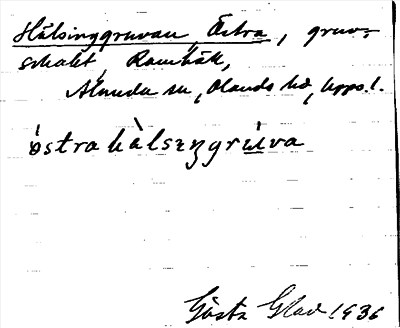 Hälsinggruvan, Östra, gruv-
schakt, Ramhäll,
Alunda sn, Olands hd, Upps. l.
östra hàlsengrúva
Gösta Glad 1936